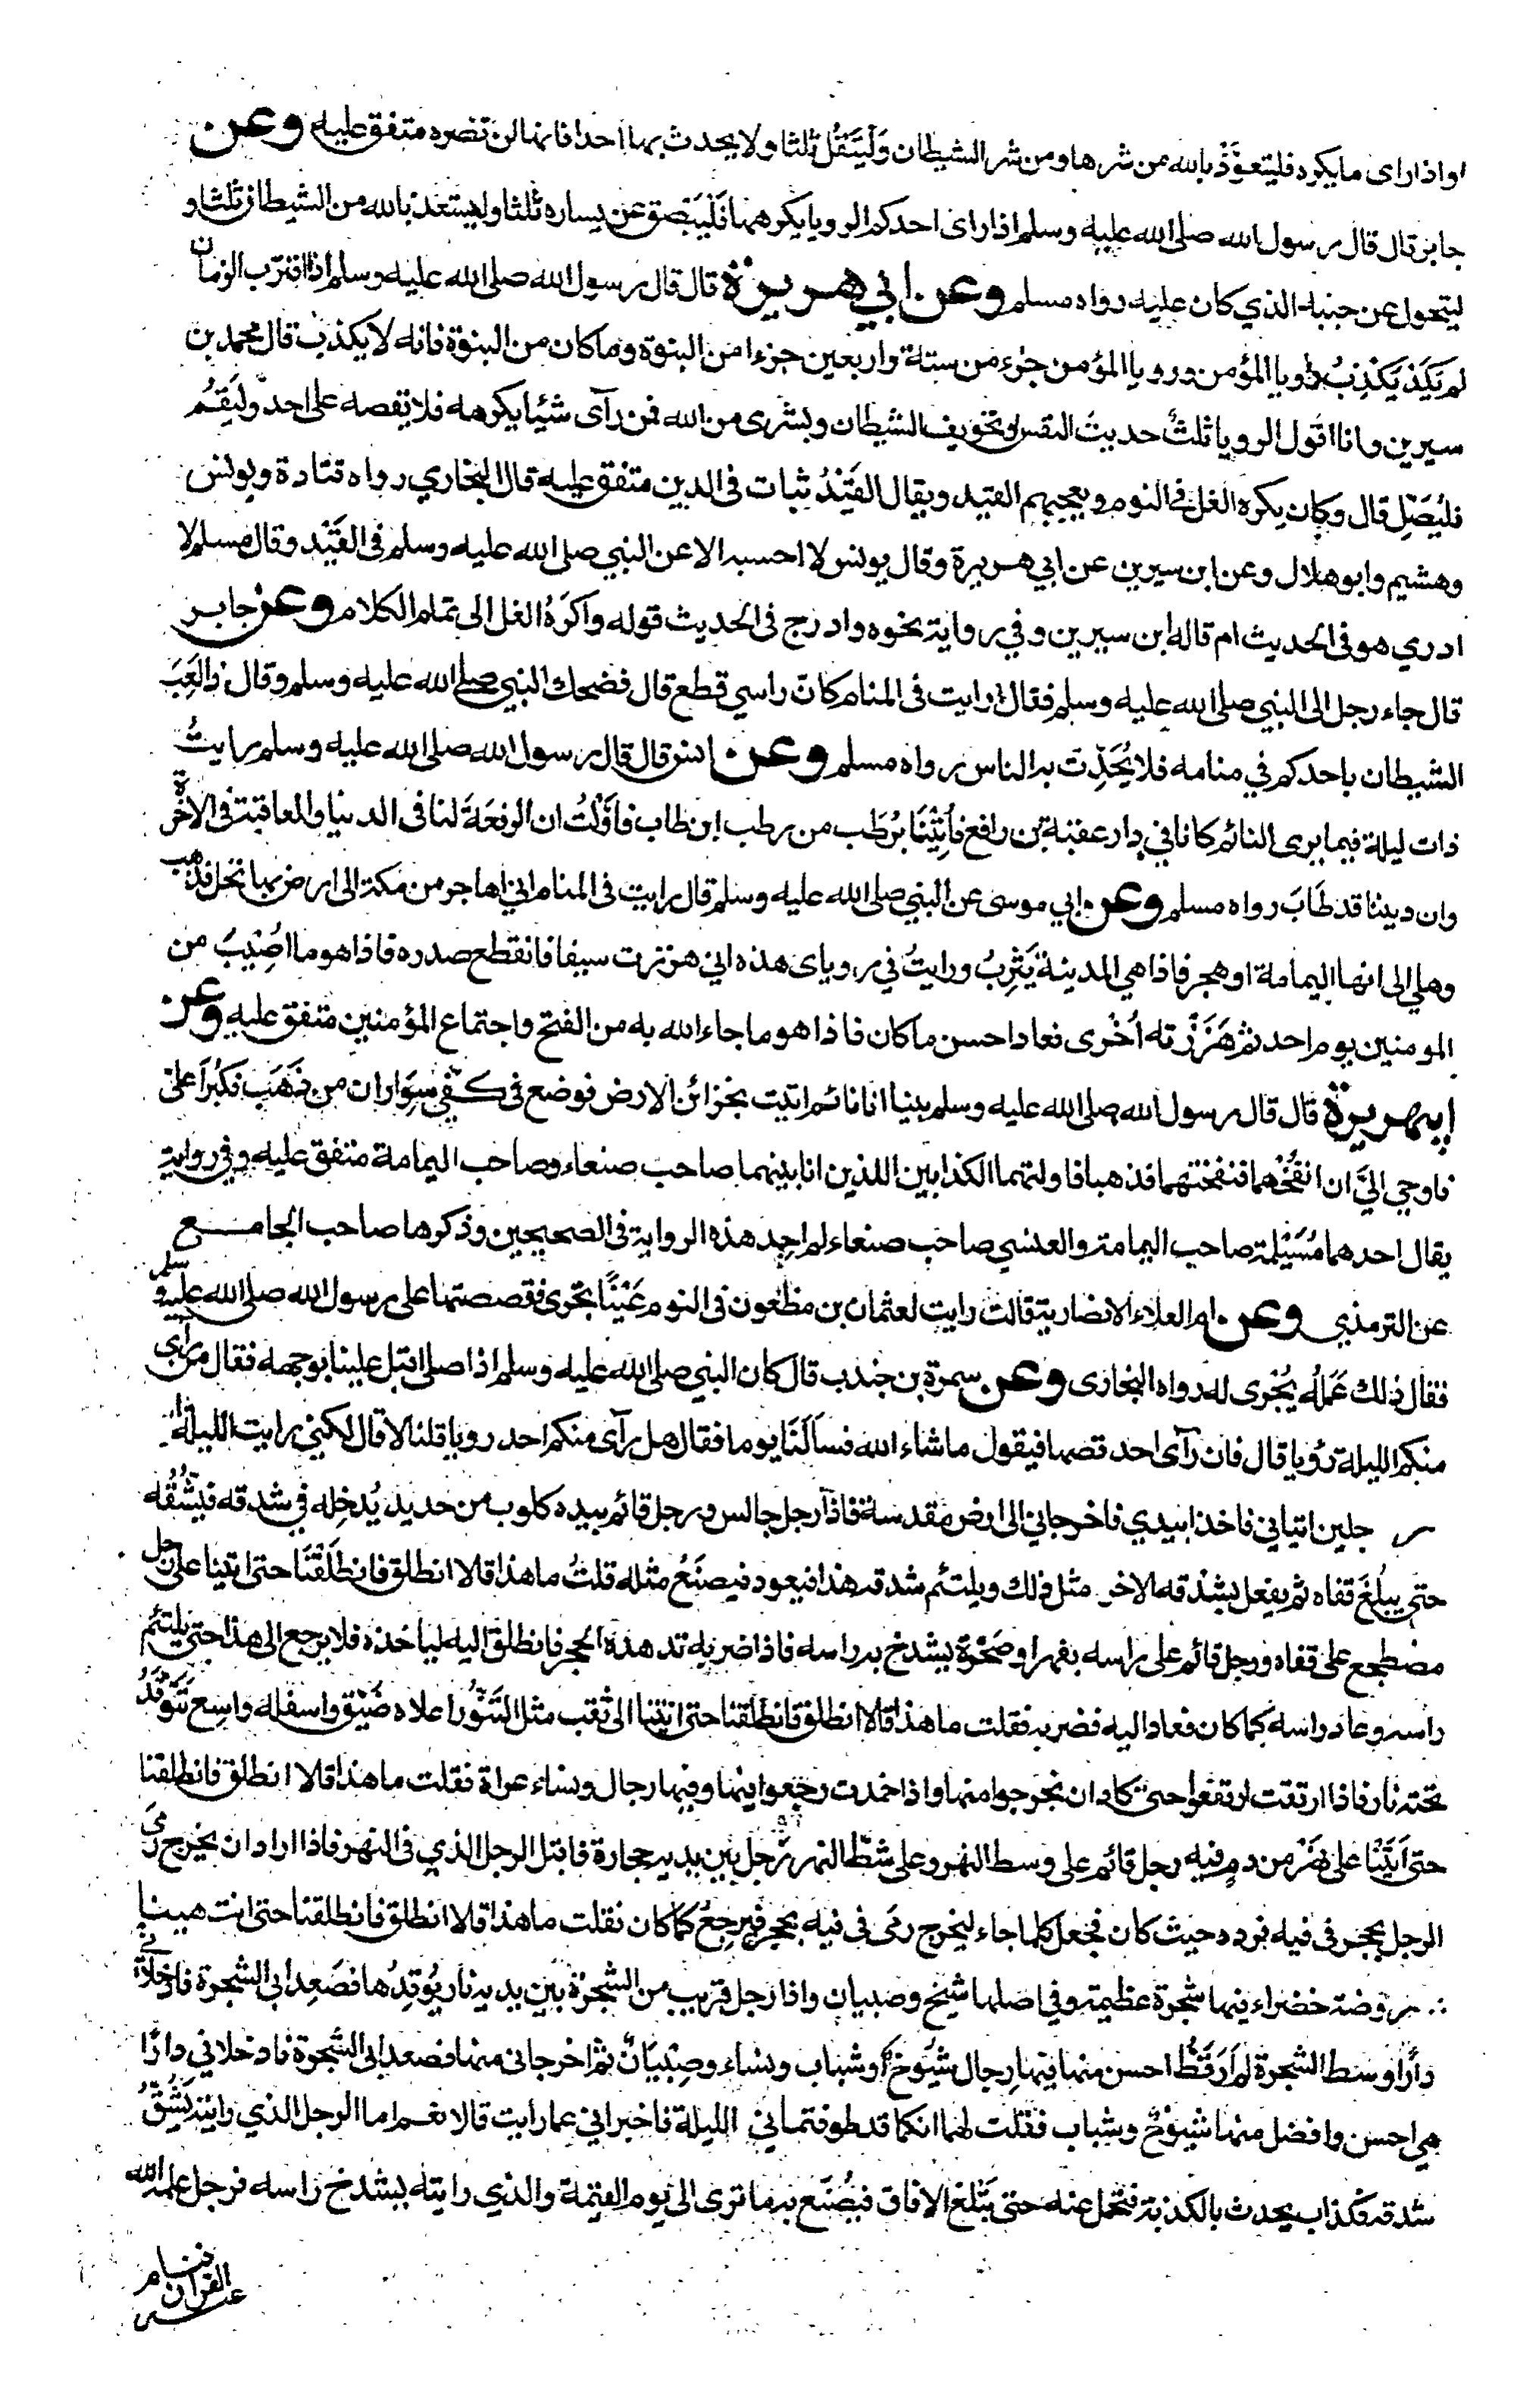 واذا راى مايكره فليتعوّذ بالله من شرها ومن شر الشيطان وَلْيَتْفُل ثلثا ولا يحدث بها احدا فانها لن تضره متفق عليه وعن
جابر قال قال رسول الله صلى الله عليه وسلم اذا راى احدكم الرويا يكرهها فَلْيَبْصُق عن يساره ثلثا وليستعذ بالله من الشيطان ثلثا و
ليتحول عن جنبه الذي كان عليه رواه مسلم وعن ابي هريرة قال قال رسول الله صلى الله عليه وسلم اذا اقترب الزمان
لم يَكَد يَكْذِبُ رويا المؤمن ورويا المؤمن جزء من ستة واربعين جزءا من النبوة وماكان من النبوة فانه لا يكذب قال محمد بن
سيرين وانا اقول الرويا ثلثٌ حديث النفس وتخويف الشيطان وبشرى من الله فمن رآى شيئا يكرهه فلا يقصه على احد ولْيَقُم
فليُصَلِّ قال وكان يكره الغل في النوم ويعجبهم القيد ويقال القَيْدُ ثبات فى الدين متفق عليه قال البخاري رواه قتادة ويونس
وهشيم وابو هلال وعن ابن سيرين عن ابي هريرة وقال يونس لا احسبه الا عن النبي صلى الله عليه وسلم فى القَيْد وقال مسلم لا
ادري هو فى الحديث ام قاله ابن سيرين وفي رواية نحوه وادرج فى الحديث قوله واكرَهُ الغل الى تمام الكلام وعن جابر
قال جاء رجل الى النبي صلى الله عليه وسلم فقال رايت فى المنام كانّ راسي قطع قال فضحك النبي صلى الله عليه وسلم وقال اذا لَعِبَ
الشيطان باحدكم في منامه فلا يُحَدِّث به الناس رواه مسلم وعن انس قال قال رسول الله صلى الله عليه وسلم رايتُ
ذات ليلة فيما يرى النائم كانا في دار عقبة بن رافع فأُتِيْنَا برُطَب من رطب ابن طاب فاَوَّلْتُ ان الرفعَةَ لنا فى الدنيا والعاقبة فى الآخرة
وان ديننا قد طَابَ رواه مسلم وعن ابي موسى عن النبي صلى الله عليه وسلم قال رايت فى المنام اني اهاجر من مكة الى ارض بها نخل فذهب
وهلي الى انها اليمامة او هجر فاذا هي المدينة يَثْرِبُ ورايتُ في روياى هذه اني هززت سيفا فانقطع صدره فاذا هو ما اُصِيْبَ من
المومنين يوم احد ثم هَزَزْته اُخْرى فعاد احسن ماكان فاذا هو ما جاء الله به من الفتح واجتماع المؤمنين متفق عليه وعن
ابي هريرة قال قال رسول الله صلى الله عليه وسلم بينا انا نائم اتيت بخزائن الارض فوضع فى كفّي سِوَاران من ذَهَب فكَبُرَا علىّ
فاوحي اليَّ ان انفُخْهما فنفختهما فذهبا فاولتهما الكذابين اللذين انا بينهما صاحب صنعاء وصاحب اليمامة متفق عليه وفي رواية
يقال احدهما مُسَيْلمة صاحب اليمامة والعنسي صاحب صنعاء لم اجد هذه الرواية فى الصحيحين وذكرها صاحب الجامع
عن الترمذي وعن ام العلاء الانصارية قالت رايت لعثمان بن مظعون فى النوم عَيْنًا تجرى فقصصتها على رسول الله صلى الله عليه وسلم
فقال ذلك عَمَلُه يُجْرى له رواه البخارى وعن سمرة بن جندب قال كان النبي صلى الله عليه وسلم اذا صلى اقبل علينا بوجهه فقال من راى
منكم الليلة رُويا قال فان رآى احد قصها فيقول ماشاء الله فسَاَلَنَا يوما فقال هل رآى منكم احد رويا قلنا لا قال لكني رايت الليلة
رجلين اتياني فاخذا بيدي فاخرجاني الى ارض مقدسة فاذا رجل جالس ورجل قائم بيده كلوب من حديد يُدخِله في شدقه فيَشُقُّه
حتى يبلُغَ قفاه ثم يفعل بشدْقه الاخر مثل ذلك ويلتئم شدقه هذا فيعود فيصنَعُ مثله قلتُ ما هذا قالا انطلق فانطَلَقْنَا حتى اتينا على رجل
مضطجع على قفاه ورجل قائم على راسه بفهر او صَخْرة يشدخ به راسه فاذا ضربه تدهده الحجر فانطلق اليه لياخذه فلا يرجع الى هذا حتى يلتئم
راسه وعاد راسه كما كان فعاد اليه فضربه فقلت ما هذا قالا انطلق فانطلقنا حتى اتينا الى ثقب مثل التَّنُّور اعلاه ضَيِّق واسفله واسع تَتَوَقَّدُ
تحته نار فاذا ارتقت ارتفعوا حتى كاد ان يخرجوا منها واذا خمدت رجعوا فيها وفيها رجال ونساء عراة فقلت ما هذا قالا انطلق فانطلقنا
حتى اَتَيْنا على نهر من دم فيه رجل قائم على وسط النهر وعلى شطّ النهر رَجل بين يديه حجارة فاقبل الرجل الذي فى النهر فاذا اراد ان يخرج رمَى
الرجل بحجر فى فيه فرده حيث كان فجعل كلما جاء ليخرج رمَى فى فيه بحجر فيرجعُ كما كان فقلت ما هذا قالا انطلق فانطلقنا حتى انتهينا الى
روضة خضراء فيها شجرة عظيمة وفي اصلها شيخ وصبيان واذا رجل قريب من الشجرة بين يديه نار يُوقِدُها فصَعِدا بي الشجرة فادخلاني
دارا وسط الشجرة لم اَرَ قَطُّ احسن منها فيها رجال شُيُوخٌ وشباب ونساء وصِبْيَانٌ ثم اخرجاني منها فصعدا بي الشجرة فادخلاني دارًا
هي احسن وافضل منها شيوخٌ وشباب فقلت لهما انكما قد طوفتماني الليلة فاخبراني عما رايت قالا نعم اما الرجل الذي رايته يَشُقُّ
شدقه فكذاب يحدث بالكذبة فتحمل عنه حتى تَبْلغ الافاق فيُصْنَع به ما ترى الى يوم القيمة والذي رايته يشدخ راسه فرجل علمه الله
القرآن فنام
عنه